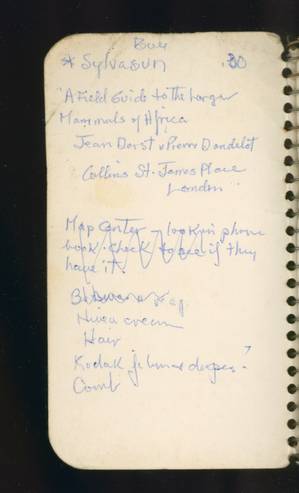 Buy
* Sylvasun .30
"A Field Guide to the Larger
Mammals of Africa
Jean Dorst & Pierre Dandelot
Collins St. James Place
London
Map Center - look in phone
book. Check to see if they
have it.
Nivea cream
Hair
Kodak
Comb